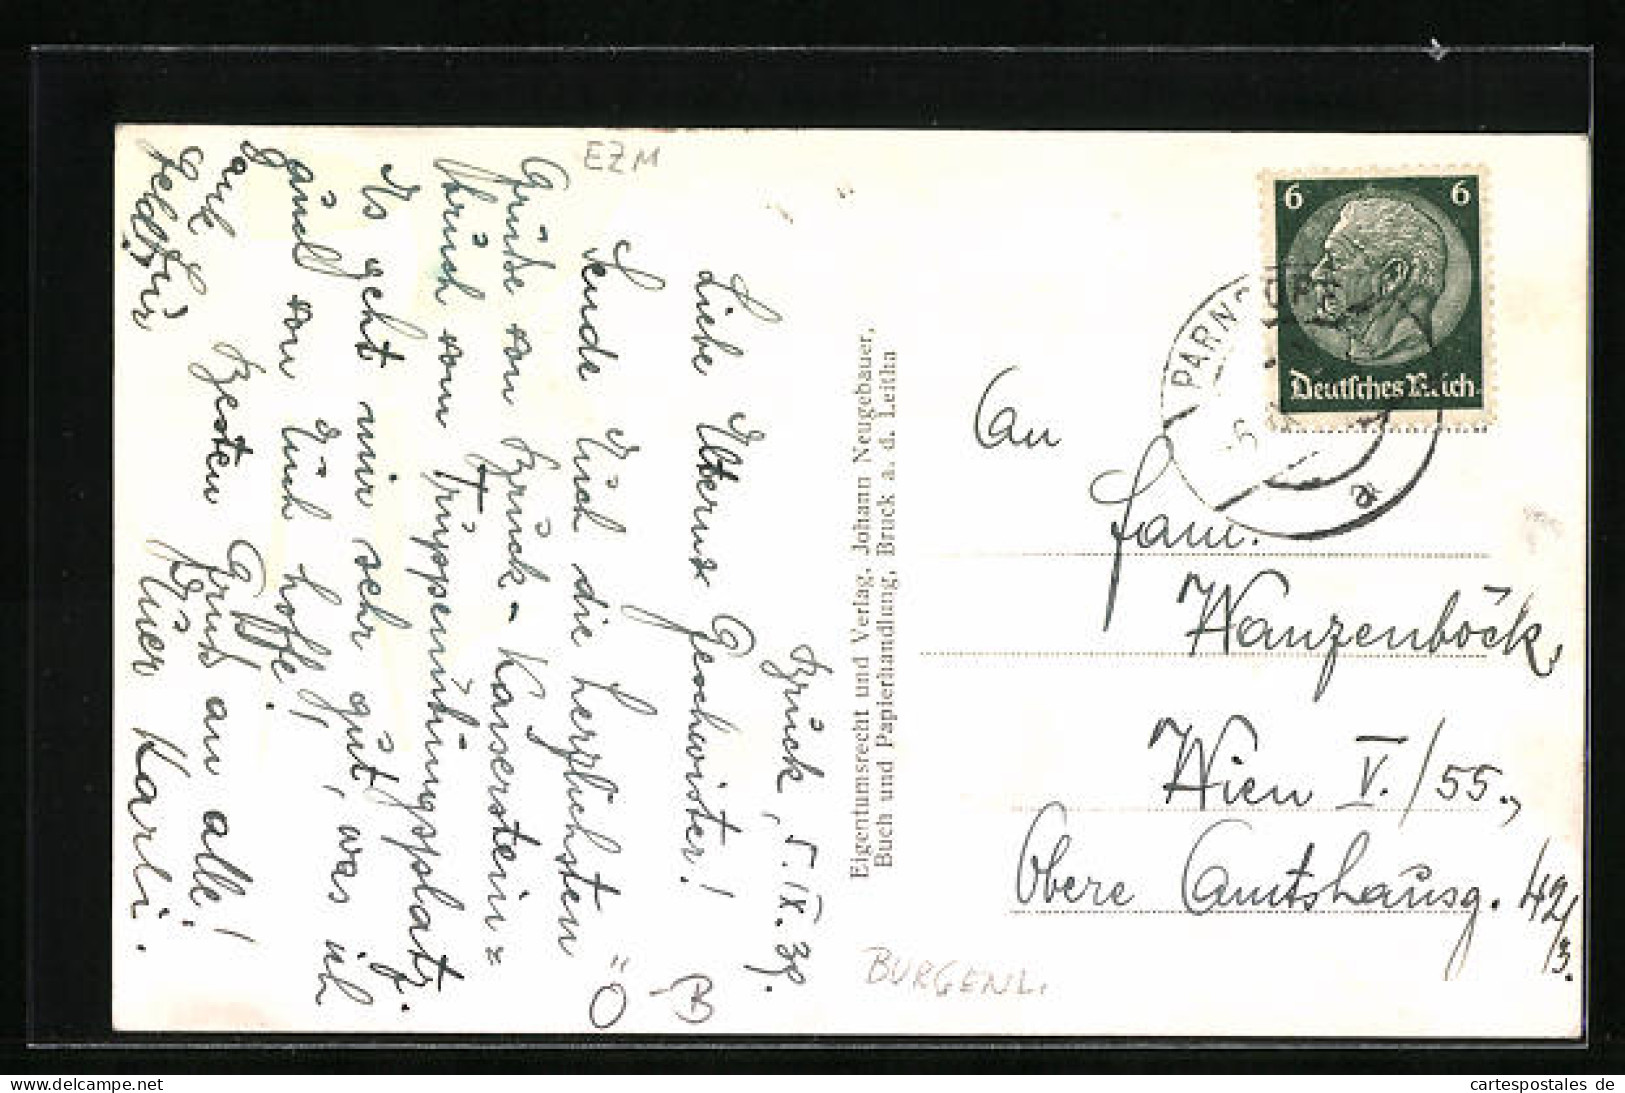 EZM
Brück, 5. IX. 39.
Liebe Eltern u. Geschwister!
Sende Euch die herzlichsten
Grüße von Brück-Kaiserstein=
bruch vom Truppenübungsplatz.
Es geht mir sehr gut, was ich
auch von Euch hoffe!
Besten Gruß an alle!
Euer Karli.
Ö
B
Eigentumsrecht und Verlag, Johann Neugebauer,
Buch und Papierhandlung, Bruck a. d. Leitha
6 6
Deutsches Reich
PARNDORF
6
a
An
Fam.
Wanzenböck,
Wien V./55.,
Obere Amtshausg. 42/3.
BURGENL.
ma-shops.com
cartespostales de